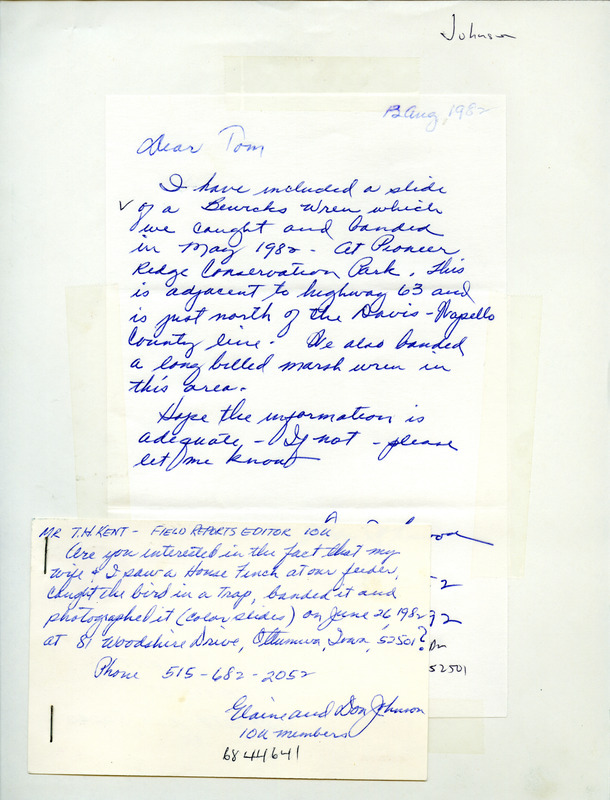 Johnson
13 Aug, 1982
Dear Tom
I have included a slide
✓ of a Bewicks Wren which
we caught and banded
in May 1982 - At Pioneer
Ridge Conservation Park. This
is adjacent to highway 63 and
is just north of the Davis - Wapello
County line. We also banded
a long billed marsh wren in
this area.
Hope the information is
adequate - If not - please
let me know
MR T.H. KENT - FIELD REPORTS EDITOR IOU
Are you interested in the fact that my
wife & I saw a House Finch at our feeder,
caught the bird in a trap, banded it and
photographed it (color slides) on June 26 1982
at 81 Woodshire Drive, Ottumwa, Iowa, 52501?
Phone 515-682-2052
Elaine and Don Johnson
IOU members
6844641
Dr
52501